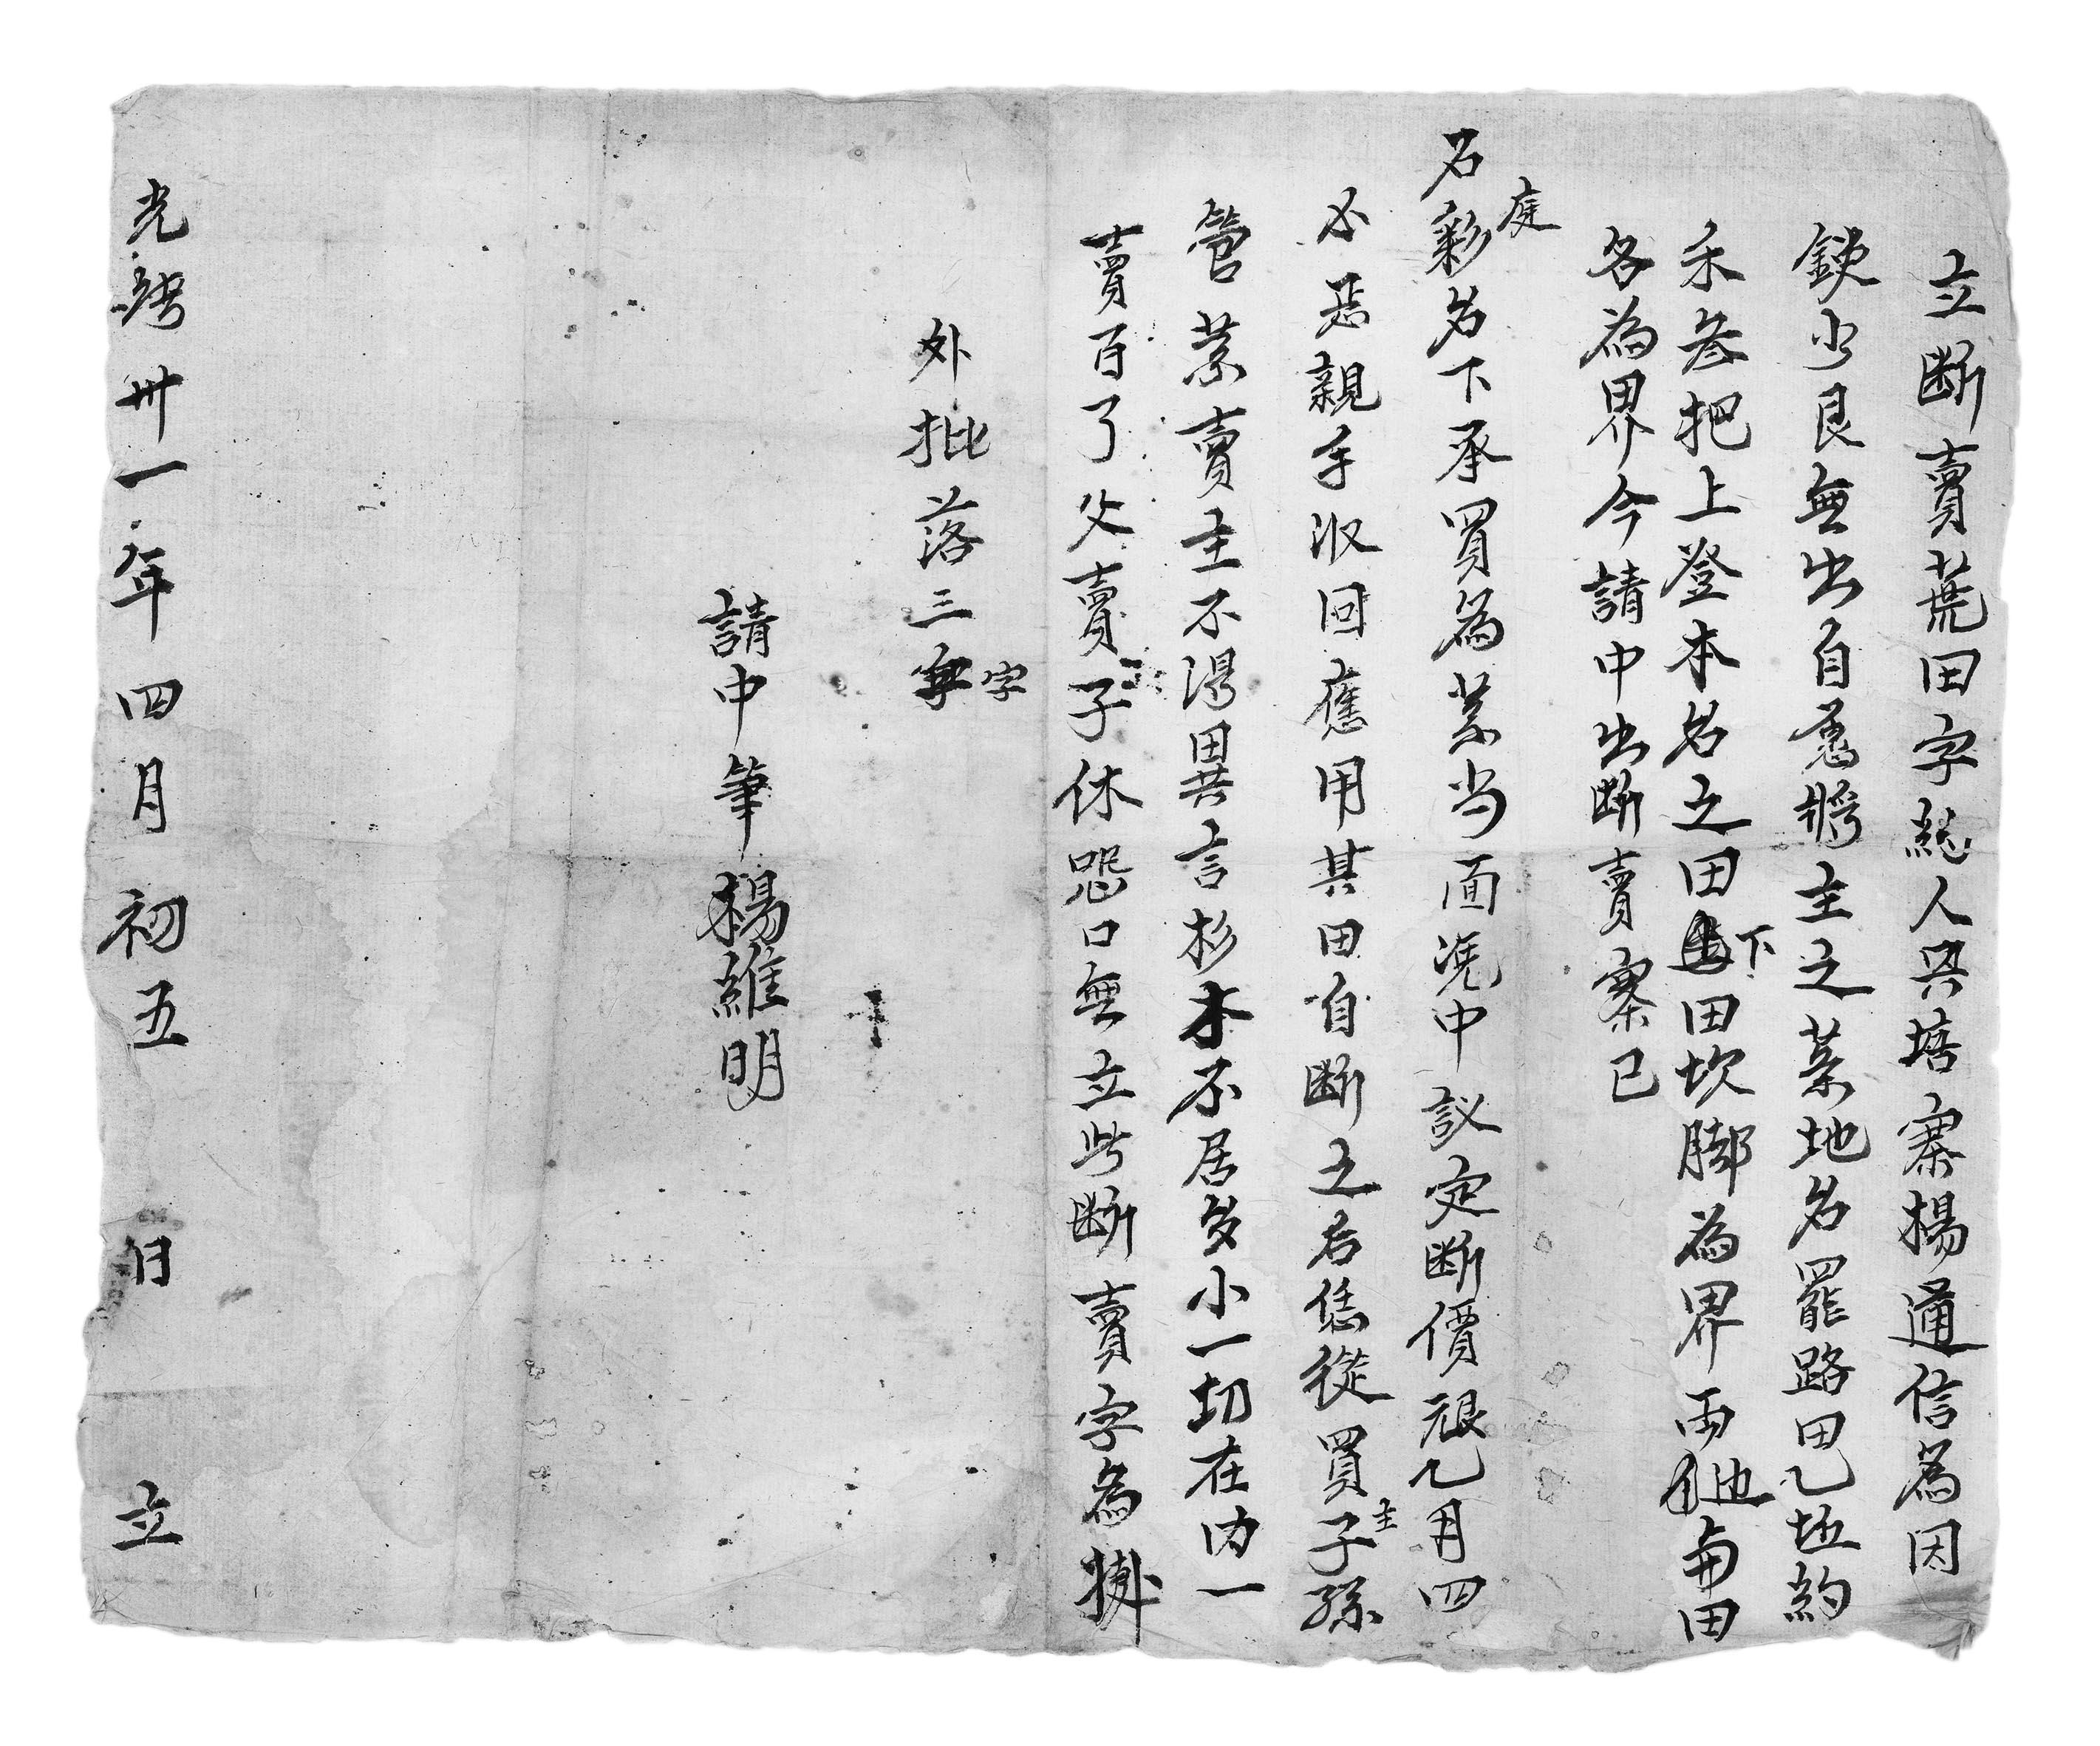 立断賣荒田字総人具培寨楊通信為因
鈌少艮無出自愿將主之業地名罷路田乙坵約
禾叁把上登本名之田下田坎脚為界両
各為界今請中出断賣寨已
名彩庭名下承買為業当面凴中議定断價艮乙月四
必是親手收回應用其田自断之后恁從買主子孫
管業賣主不得異言杉木不居多小一切在内一
賣百了父賣子休恐口無立此断賣字為據
外批落三字
請中筆楊維明
光緒卅一年四月初五日立